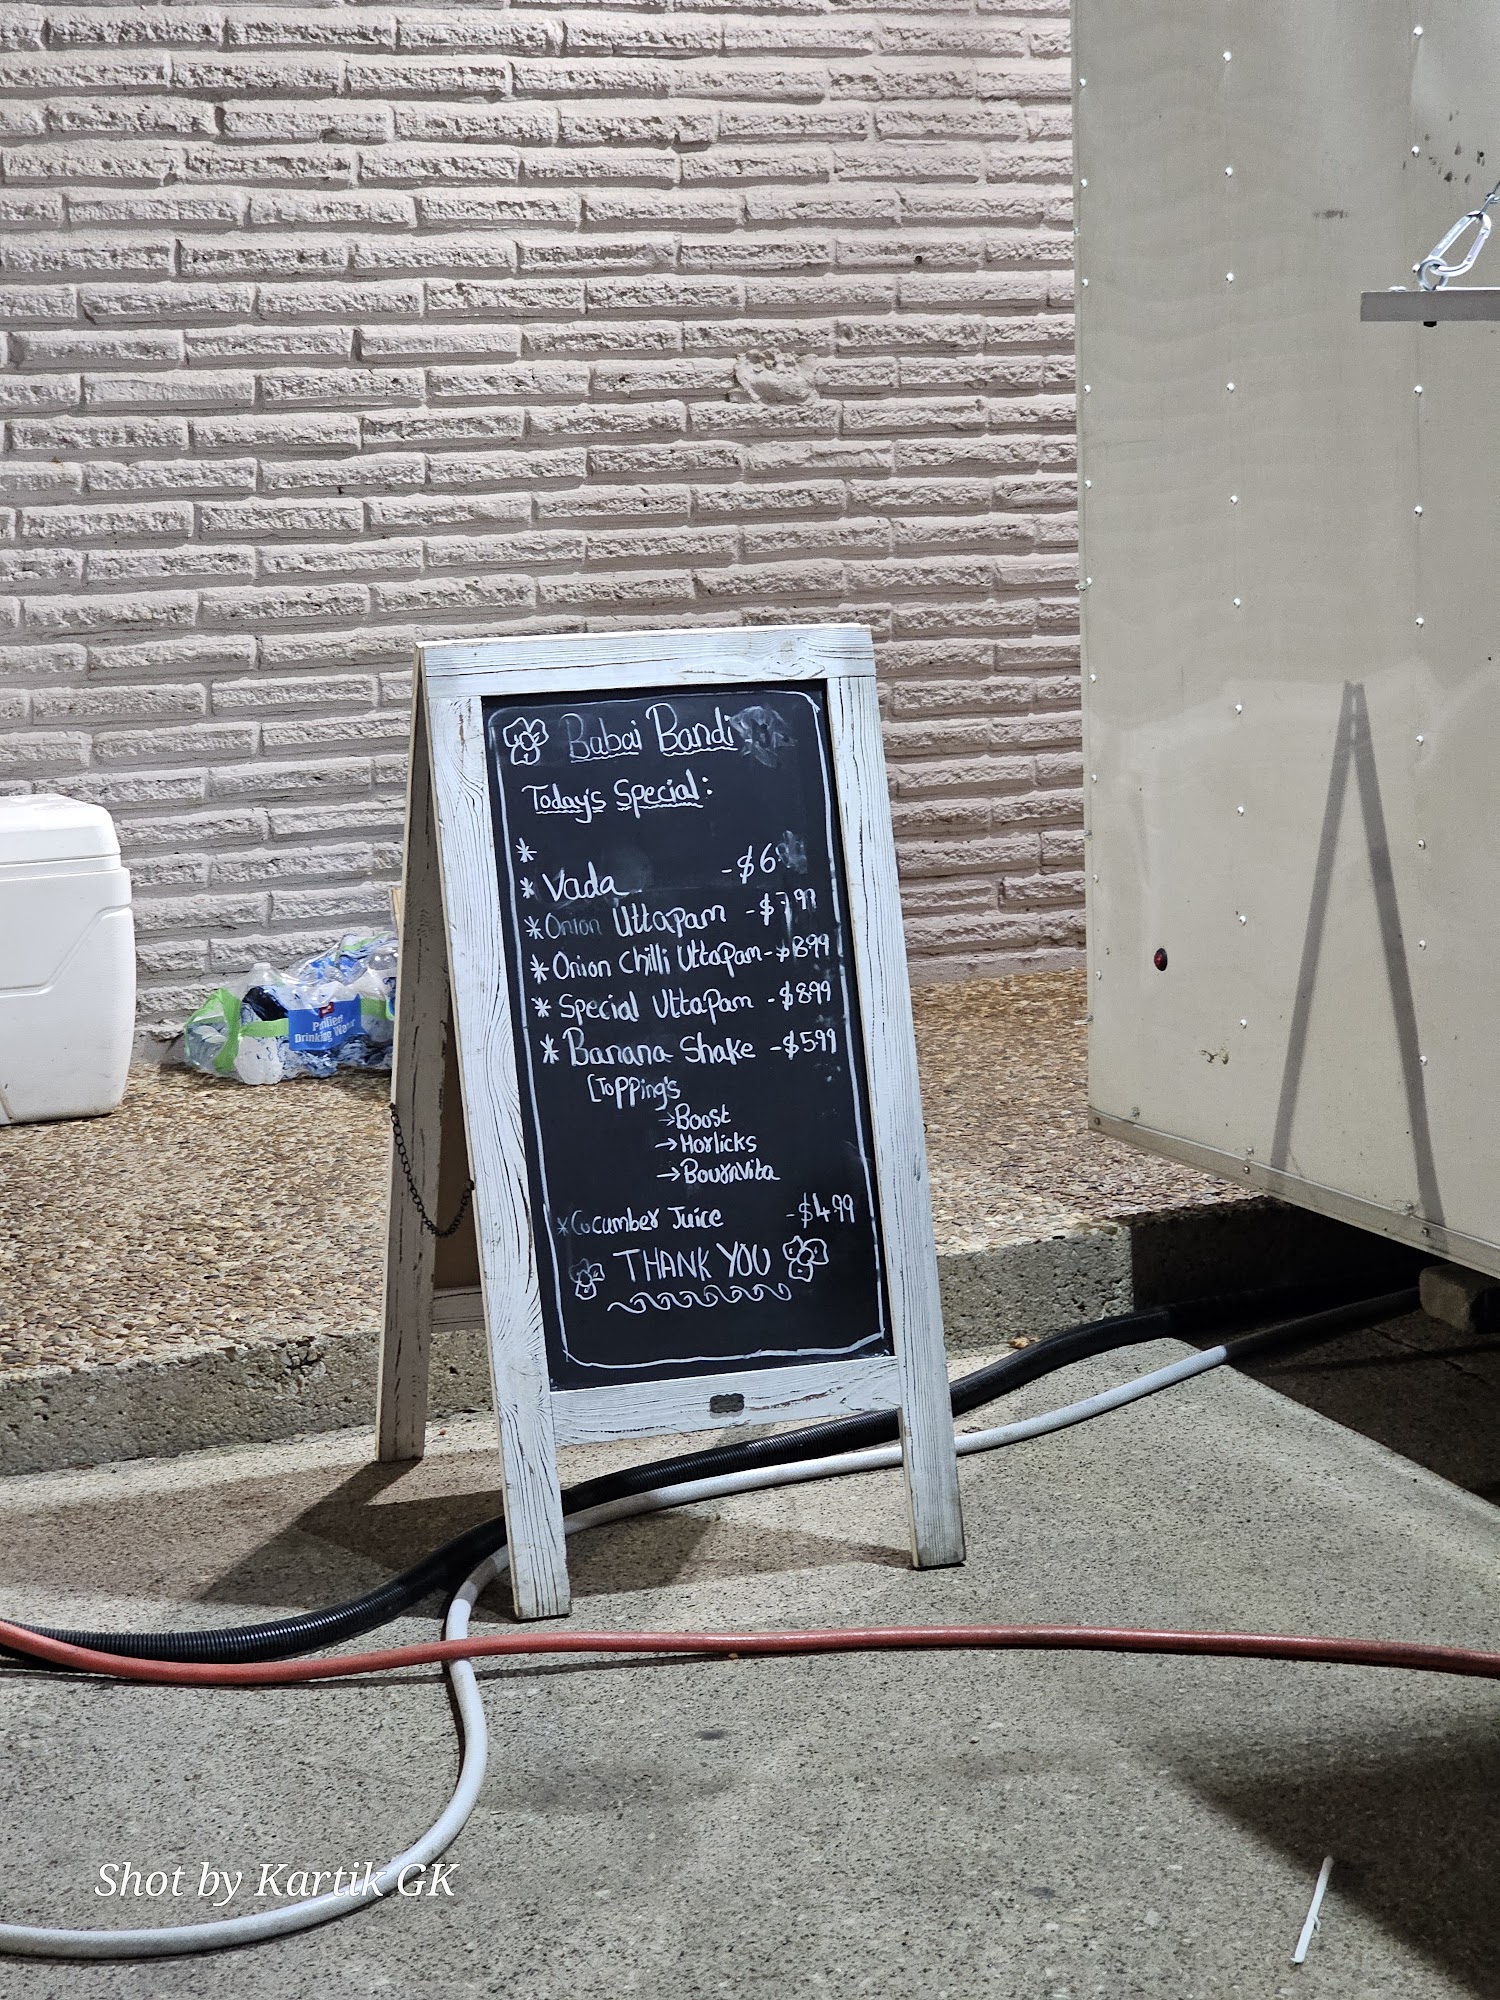 Babai Bandi
Today's Special:
*
* Vada - $6
* Onion Uttapam - $7.99
* Onion Chilli Uttapam - $8.99
* Special Uttapam - $8.99
* Banana Shake - $5.99
[Topping's
→ Boost
→ Horlicks
→ Bournvita
* Cucumber Juice - $4.99
THANK YOU
Purified
Drinking Water
Shot by Kartik GK